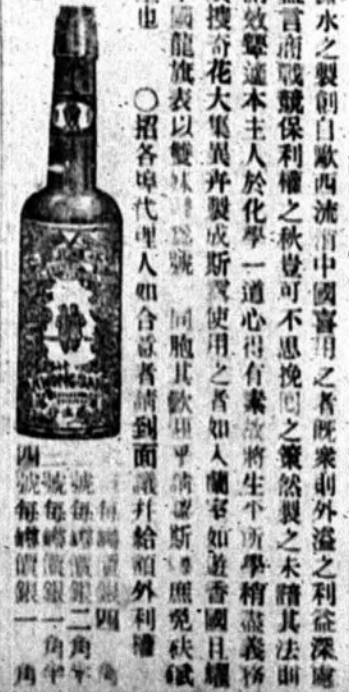 水之製創自歐西流消中國喜用之者既衆則外溢之利益深處
言商戰競保利權之秋豈可不思挽回之策然製之未諳其法則
效顰遑本主人於化學一道心得有素故將生平所學稍盡義務
搜奇花大集異卉製成斯露使用之者如入蘭室如遊香國且耀
國龍旗表以雙妹 爲號 同胞其歡用乎請認斯 庶免砆碔
也 〇招各埠代理人如合意者請到面議幷給額外利權
號每罇價銀四角
號每罇價銀二角半
三號每罇價銀一角半
四號每罇價銀一角
KWONG SANG